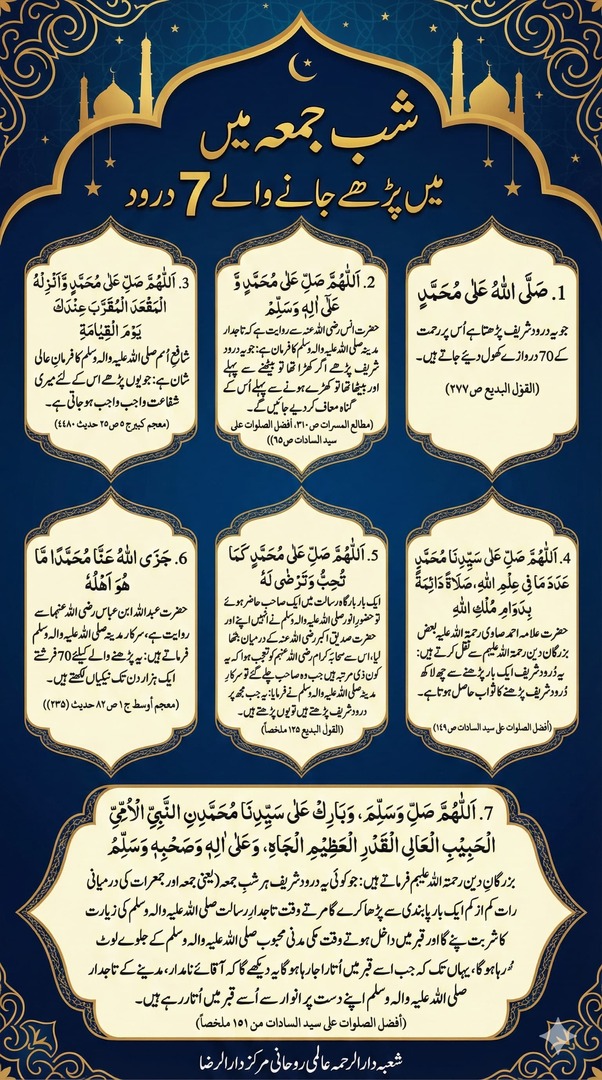 شب جمعہ میں
میں پڑھے جانے والے 7 درود
1. صَلَّى اللهُ عَلٰى مُحَمَّدٍ
جو یہ درود شریف پڑھتا ہے اُس پر رحمت
کے 70 دروازے کھول دیئے جاتے ہیں۔
(القول البدیع ص۲۷۷)
2. اَللّٰهُمَّ صَلِّ عَلٰى مُحَمَّدٍ وَّ
عَلٰٓى اٰلِهٖ وَسَلِّمْ
حضرت انس رضی اللہ عنہ سے روایت ہے کہ تاجدار
مدینہ صلی اللہ علیہ والہ وسلم کا فرمان ہے: جو یہ درود
شریف پڑھے اگر کھڑا تھا تو بیٹھنے سے پہلے
اور بیٹھا تھا تو کھڑے ہونے سے پہلے اُس کے
گناہ معاف کر دیے جائیں گے۔
(مطالع المسرات ص۳۱۰، أفضل الصلوات على
سيد السادات ص۶۵))
3. اَللّٰهُمَّ صَلِّ عَلٰى مُحَمَّدٍ وَّاَنْزِلْهُ
الْمَقْعَدَ الْمُقَرَّبَ عِنْدَكَ
يَوْمَ الْقِيَامَةِ
شافعِ اُمم صلی اللہ علیہ والہ وسلم کا فرمانِ عالی
شان ہے: جو یوں پڑھے اس کے لئے میری
شفاعت واجب واجب ہو جاتی ہے۔
(معجم کبیر ج ۵ ص ۲۵ حدیث ۴۴۸۰)
4. اَللّٰهُمَّ صَلِّ عَلٰى سَيِّدِنَا مُحَمَّدٍ
عَدَدَ مَا فِي عِلْمِ اللهِ، صَلَاةً دَائِمَةً
بِدَوَامِ مُلْكِ اللهِ
حضرت علامہ احمد صاوی رحمۃ اللہ علیہ بعض
بزرگان دین رحمۃ اللہ علیہم سے نقل کرتے ہیں:
یہ دُرود شریف ایک بار پڑھنے سے چھ لاکھ
دُرود شریف پڑھنے کا ثواب حاصل ہوتا ہے۔
(أفضل الصلوات على سيد السادات ص۱۴۹)
5. اَللّٰهُمَّ صَلِّ عَلٰى مُحَمَّدٍ كَمَا
تُحِبُّ وَتَرْضٰى لَهٗ
ایک بار بارگاہ رسالت میں ایک صاحب حاضر ہوئے
تو حضور انور صلی اللہ علیہ والہ وسلم نے انہیں اپنے اور
حضرت صدیق اکبر رضی اللہ عنہ کے درمیان بٹھا
لیا، اس سے صحابہ کرام رضی اللہ عنہم کو تعجب ہوا کہ یہ
کون ذی مرتبہ ہیں جب وہ صاحب چلے گئے تو سرکار
مدینہ صلی اللہ علیہ والہ وسلم نے فرمایا: یہ جب مجھ پر
درود شریف پڑھتے ہیں تو یوں پڑھتے ہیں۔
(القول البديع ۱۲۵ ملخصاً)
6. جَزَى اللهُ عَنَّا مُحَمَّدًا مَّا
هُوَ اَهْلُهٗ
حضرت عبد اللہ ابن عباس رضی اللہ عنہما سے
روایت ہے، سرکار مدینہ صلی اللہ علیہ والہ وسلم
فرماتے ہیں: یہ پڑھنے والے کیلئے 70 فرشتے
ایک ہزار دن تک نیکیاں لکھتے ہیں۔
(معجم أوسط ج ۱ ص ۸۲ حدیث (۲۳۵))
7. اَللّٰهُمَّ صَلِّ وَسَلِّمْ، وَبَارِكْ عَلٰى سَيِّدِنَا مُحَمَّدِنِ النَّبِيِّ الْاُمِّيِّ
الْحَبِيْبِ الْعَالِي الْقَدْرِ الْعَظِيْمِ الْجَاهِ، وَعَلٰى اٰلِهٖ وَصَحْبِهٖ وَسَلِّمْ
بزرگان دین رحمۃ اللہ علیہم فرماتے ہیں: جو کوئی یہ درود شریف ہر شب جمعہ (یعنی جمعہ اور جمعرات کی درمیانی
رات کم از کم ایک بار پابندی سے پڑھا کرے گا مرتے وقت تاجدار رسالت صلی اللہ علیہ والہ وسلم کی زیارت
کا شربت پئے گا اور قبر میں داخل ہوتے وقت مکی مدنی محبوب صلی اللہ علیہ والہ وسلم کے جلوے لوٹ
رہا ہو گا، یہاں تک کہ جب اسے قبر میں اُتارا جا رہا ہو گا یہ دیکھے گا کہ آقائے نامدار، مدینے کے تاجدار
صلی اللہ علیہ والہ وسلم اپنے دست پر انوار سے اُسے قبر میں اُتار رہے ہیں۔
(أفضل الصلوات على سيد السادات من ۱۵۱ ملخصاً)
شعبہ دارالرحمہ عالمی روحانی مرکز دارالرضا